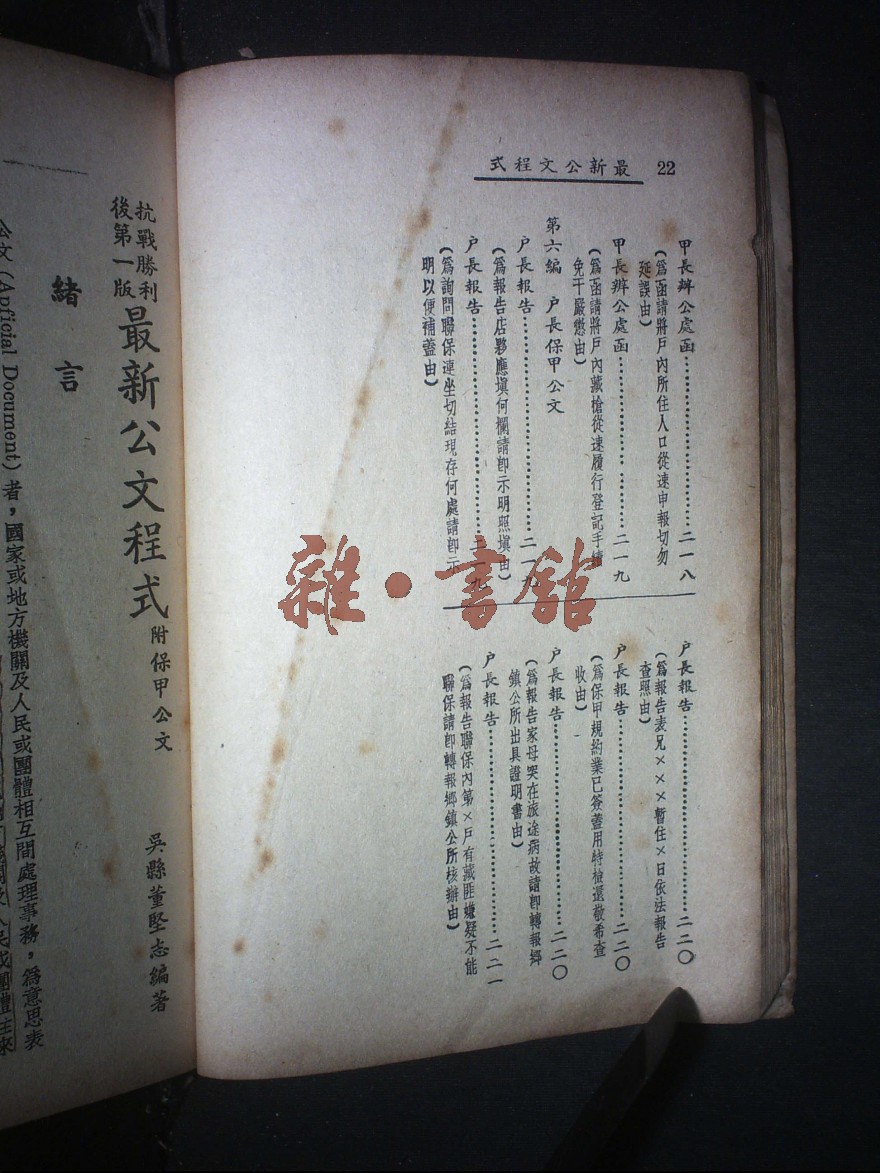 22 最新公文程式
甲長辦公處函……二一八
(爲函請將戶內所住人口從速申報切勿
延誤由)
甲長辦公處函……二一九
(爲函請將戶內藏槍從速履行登記手續
免干嚴懲由)
第六編 戶長保甲公文
戶長報告……二一九
(爲報告店夥應塡何欄請卽示明照塡由)
戶長報告……二一九
(爲詢問聯保連坐切結現存何處請卽示
明以便補蓋由)
戶長報告……二二〇
(爲報告表兄×××暫住×日依法報告
查照由)
戶長報告……二二〇
(爲保甲規約業已簽蓋用特檢還敬希查
收由)
戶長報告……二二〇
(爲報告家母突在旅途病故請卽轉報鄉
鎮公所出具證明書由)
戶長報告……二二一
(爲報告聯保內第×戶有藏匪嫌疑不能
聯保請卽轉報鄉鎮公所核辦由)
雜·書館
抗戰勝利
後第一版
最新公文程式 附保甲公文 吳縣董堅志編著
緒言
公文(Apficial Document)者,國家或地方機關及人民或團體相互間處理事務,爲意思表
人民或團體往來